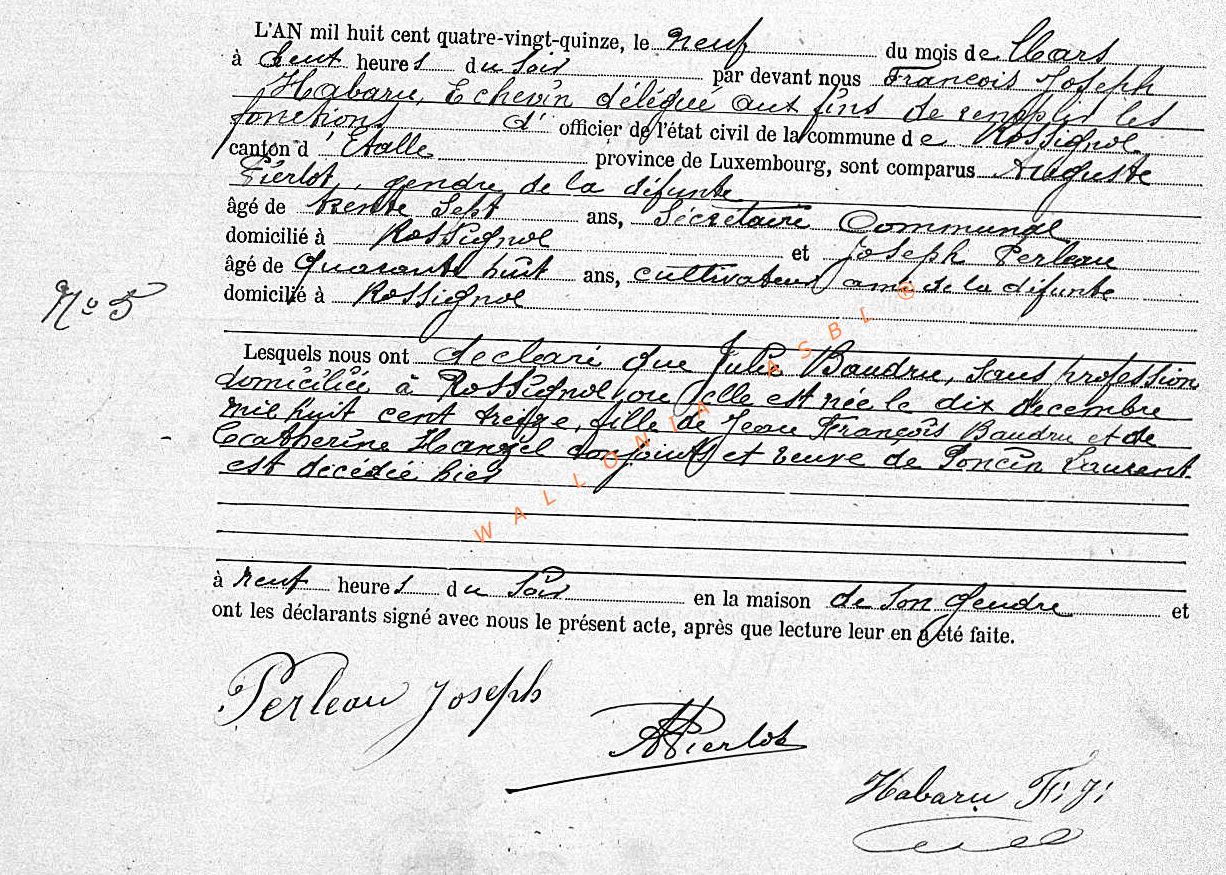 L'AN mil huit cent quatre-vingt-quinze, le neuf du mois de Mars
à deux heures du soir par devant nous François Joseph
Habaru, Echevin délégué aux fins de remplir les
fonctions d' officier de l'état civil de la commune de Rossignol
canton d'Etalle province de Luxembourg, sont comparus Auguste
Pierlot, gendre de la défunte
âgé de trente sept ans, Sécrétaire Communal
domicilié à Rossignol et Joseph Perleau
âgé de quarante huit ans, cultivateur, ami de la défunte
domicilié à Rossignol
N° 5
Lesquels nous ont déclaré que Julie Baudru, sans profession
domiciliée à Rossignol, ou elle est née le dix décembre
mil huit cent treize, fille de Jean François Baudru et de
Catherine conjoints et veuve de Poncin Laurent
est decédée hier
à neuf heures du soir en la maison de son gendre et
ont les déclarants signé avec nous le présent acte, après que lecture leur en a été faite.
Perleau Joseph
APierlot
Habaru F. J.
WALLONIA ASBL ©